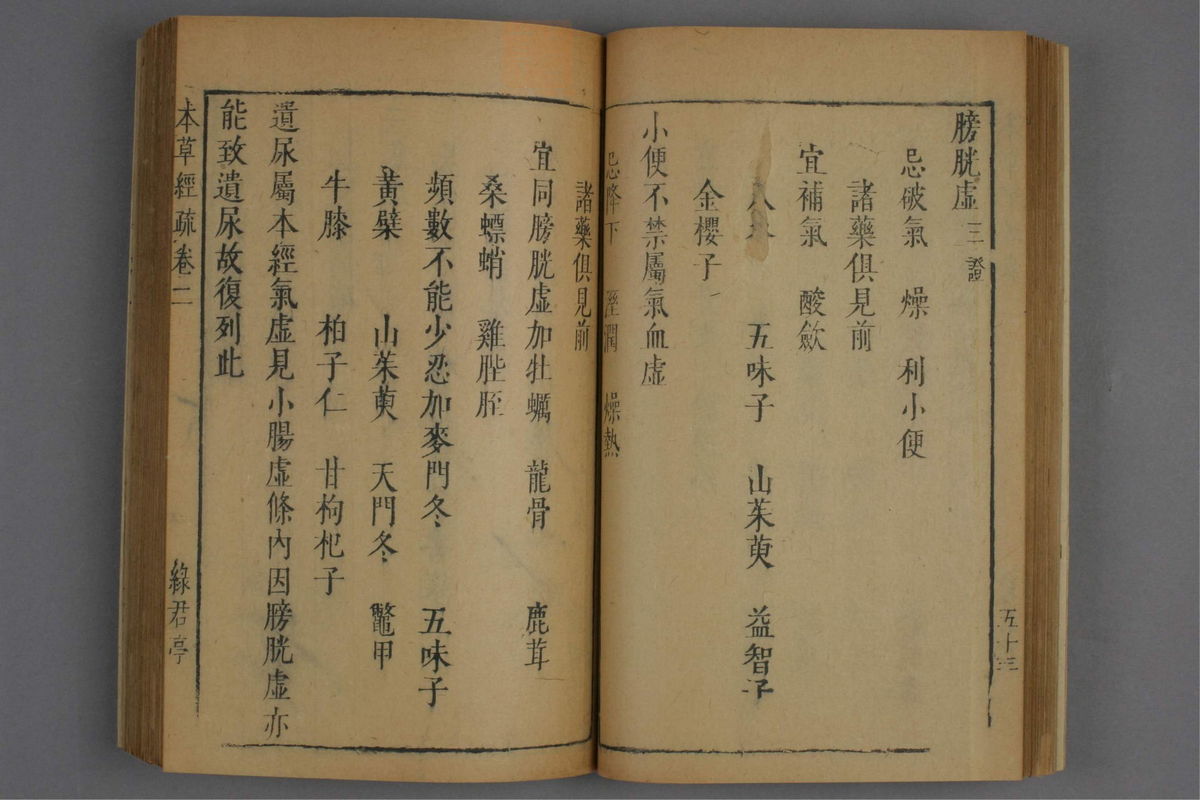 膀胱虛三證
忌破氣　燥　利小便
諸藥俱見前
宜補氣　酸歛
五味子　山茱萸　益智子
金櫻子
小便不禁屬氣血虛
忌降下　溼潤　燥熱
諸藥俱見前
宜同膀胱虛加牡蠣　龍骨　鹿茸
桑螵蛸　雞膍胵
頻數不能少忍加麥門冬　五味子
黃檗　山茱萸　天門冬　鼈甲
牛膝　柏子仁　甘枸杞子
遺尿屬本經氣虛見小腸虛條內因膀胱虛亦
能致遺尿故復列此
五十三
本草經疏卷二
綠君亭